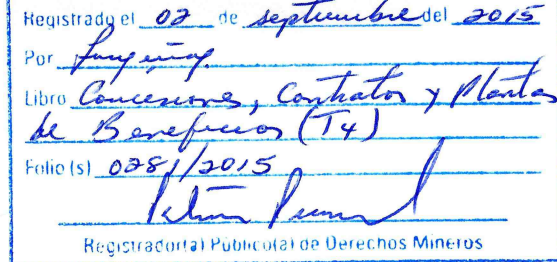 Registrado el 02 de septiembre del 2015
Por
Libro Concesiones, Contratos y Plantas
de Beneficios (T4)
Folio (s) 0281/2015
Registrador(a) Público(a) de Derechos Mineros